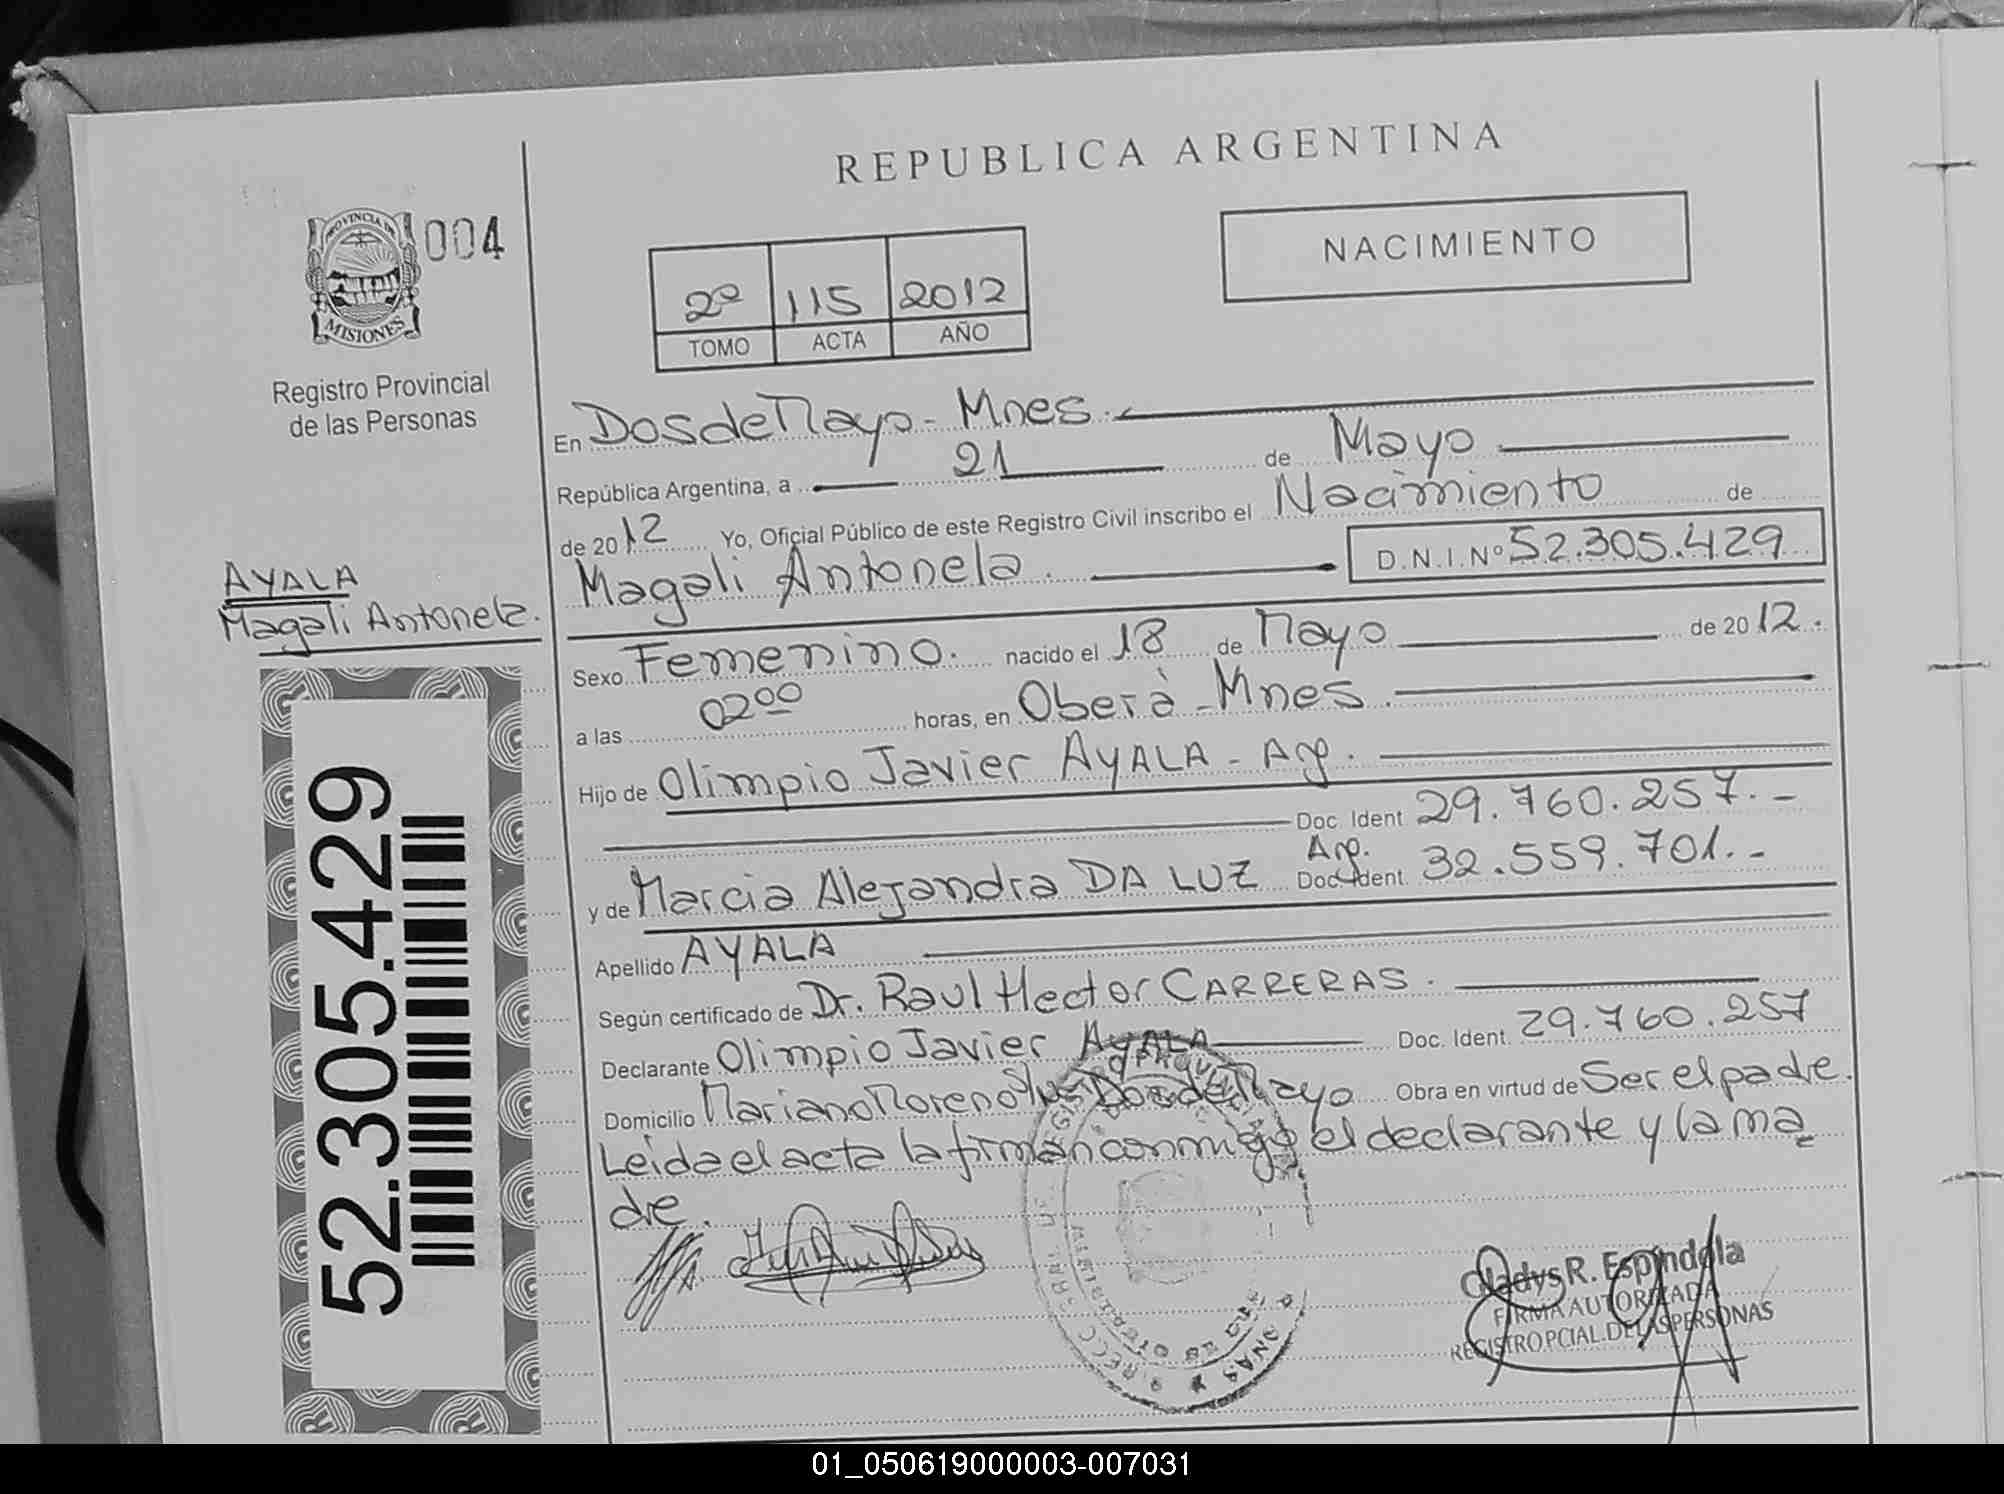 REPUBLICA ARGENTINA
PROVINCIA DE
MISIONES
004
Registro Provincial
de las Personas
NACIMIENTO
2º 115 2012
TOMO ACTA AÑO
En Dos de Mayo - Mnes.
República Argentina, a 21 de Mayo
de 2012 Yo, Oficial Público de este Registro Civil inscribo el Nacimiento de
Magali Antonela. D.N.I.Nº 52.305.429
AYALA
Magali Antonela.
Sexo Femenino. nacido el 18 de Mayo de 2012.
a las 02⁰⁰ horas, en Oberà - Mnes.
Hijo de Olimpio Javier AYALA - Arg.
Doc. Ident 29.760.257.-
y de Marcia Alejandra DA LUZ Arg. Doc. Ident. 32.559.701.-
Apellido AYALA
Según certificado de Dr. Raul Hector CARRERAS.
Declarante Olimpio Javier AYALA Doc. Ident. 29.760.257
Domicilio Mariano Moreno Dos de Mayo Obra en virtud de Ser el padre.
Leida el acta la firman conmigo el declarante y la ma
dre.
52.305.429
Gladys R. Espindola
FIRMA AUTORIZADA
REGISTRO PCIAL. DE LAS PERSONAS
01_050619000003-007031